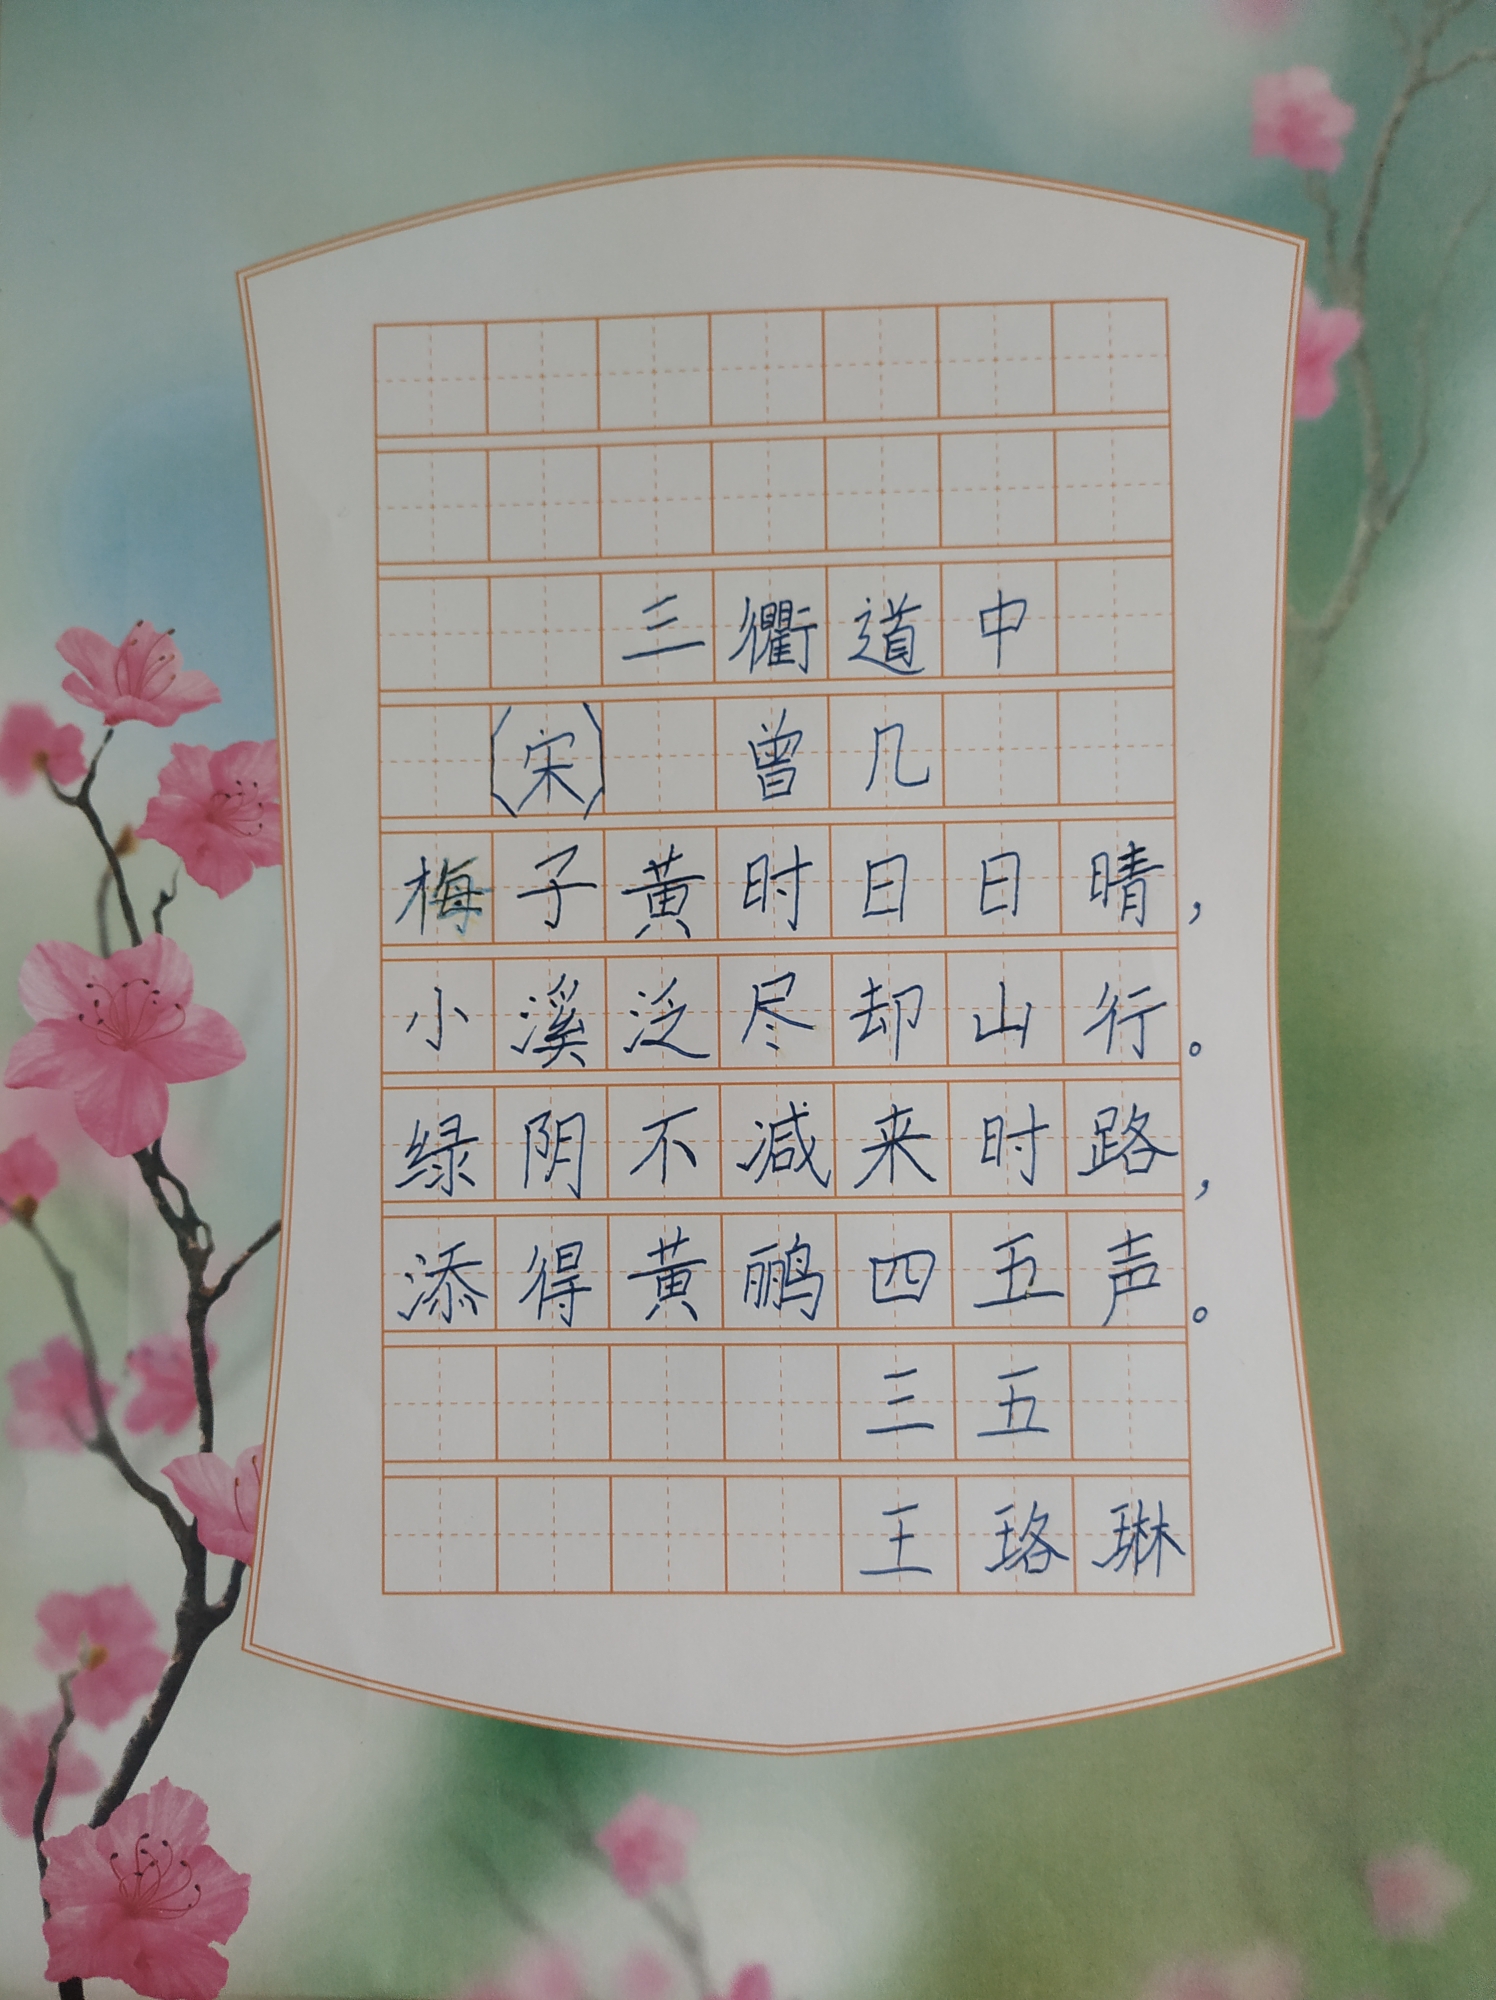 三衢道中
(宋) 曾几
梅子黄时日日晴,
小溪泛尽却山行。
绿阴不减来时路,
添得黄鹂四五声。
三五
王珞琳